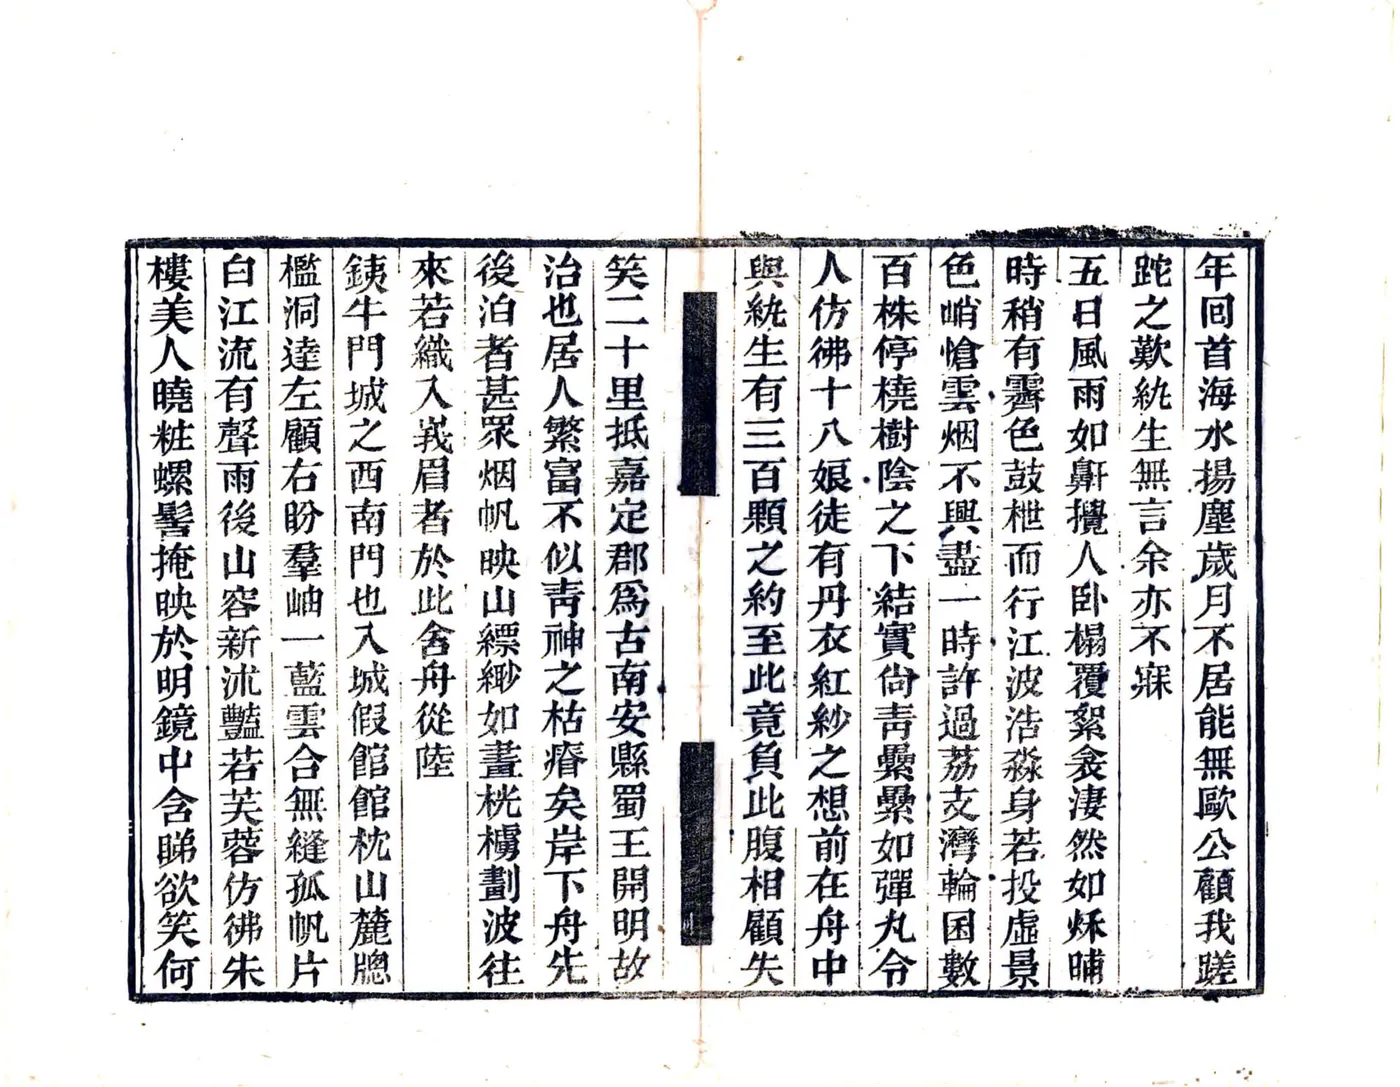 年回首海水揚塵歲月不居能無歐公顧我蹉
跎之歎紈生無言余亦不寐
五日風雨如鼾攪人卧榻覆絮衾淒然如秌晡
時稍有霽色鼓枻而行江波浩淼身若投虛景
色峭愴雲烟不興盡一時許過荔支灣輪囷數
百株停橈樹陰之下結實尙靑纍纍如彈丸令
人仿彿十八娘徒有丹衣紅紗之想前在舟中
與紈生有三百顆之約至此竟負此腹相顧失
笑二十里抵嘉定郡爲古南安縣蜀王開明故
治也居人繁富不似靑神之枯瘠矣岸下舟先
後泊者甚眾烟帆映山縹緲如畫桄櫋劃波往
來若織入峩眉者於此舍舟從陸
銕牛門城之西南門也入城假館館枕山麓牕
檻洞達左顧右盼羣岫一藍雲合無縫孤帆片
白江流有聲雨後山容新沭豔若芙蓉仿彿朱
樓美人曉粧螺髻掩映於明鏡中含睇欲笑何